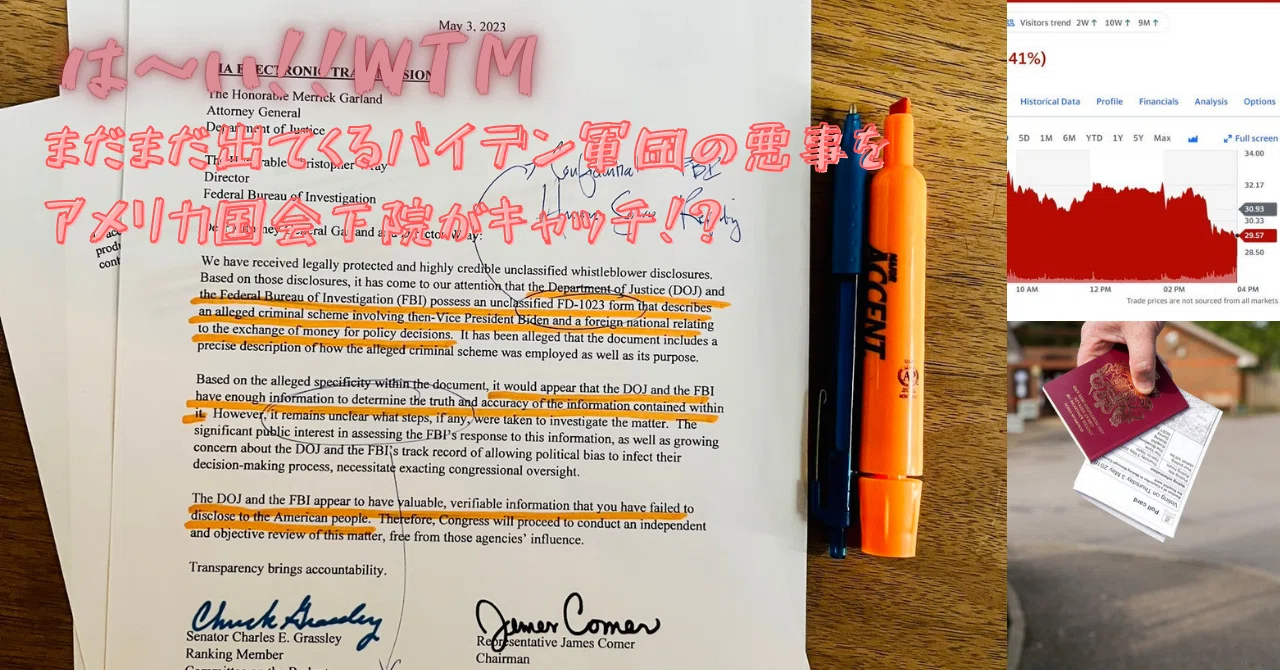 は〜い!!WTM
まだまだ出てくるバイデン軍団の悪事を
アメリカ国会下院がキャッチ!?
May 3, 2023
VIA ELECTRONIC TRANSMISSION
The Honorable Merrick Garland
Attorney General
Department of Justice
The Honorable Christopher Wray
Director
Federal Bureau of Investigation
Dear Attorney General Garland and Director Wray:
We have received legally protected and highly credible unclassified whistleblower disclosures.
Based on those disclosures, it has come to our attention that the Department of Justice (DOJ) and
the Federal Bureau of Investigation (FBI) possess an unclassified FD-1023 form that describes
an alleged criminal scheme involving then-Vice President Biden and a foreign national relating
to the exchange of money for policy decisions. It has been alleged that the document includes a
precise description of how the alleged criminal scheme was employed as well as its purpose.
Based on the alleged specificity within the document, it would appear that the DOJ and the FBI
have enough information to determine the truth and accuracy of the information contained within
it. However, it remains unclear what steps, if any, were taken to investigate the matter. The
significant public interest in assessing the FBI's response to this information, as well as growing
concern about the DOJ and the FBI's track record of allowing political bias to infect their
decision-making process, necessitate exacting congressional oversight.
The DOJ and the FBI appear to have valuable, verifiable information that you have failed to
disclose to the American people. Therefore, Congress will proceed to conduct an independent
and objective review of this matter, free from those agencies' influence.
Transparency brings accountability.
Chuck Grassley
Senator Charles E. Grassley
Ranking Member
James Comer
Representative James Comer
Chairman
prod
cont
FBI
MAJOR
ACCENT
AP
Visitors trend 2W ↑ 10W ↑ 9M ↑
41%)
Historical Data Profile Financials Analysis Options
5D 1M 6M YTD 1Y 5Y Max Full screen
34.00
32.17
30.93
30.33
29.57
28.50
10 AM 12 PM 02 PM 04 PM
Trade prices are not sourced from all markets
Voting on Thursday 3 May 201
Poll card